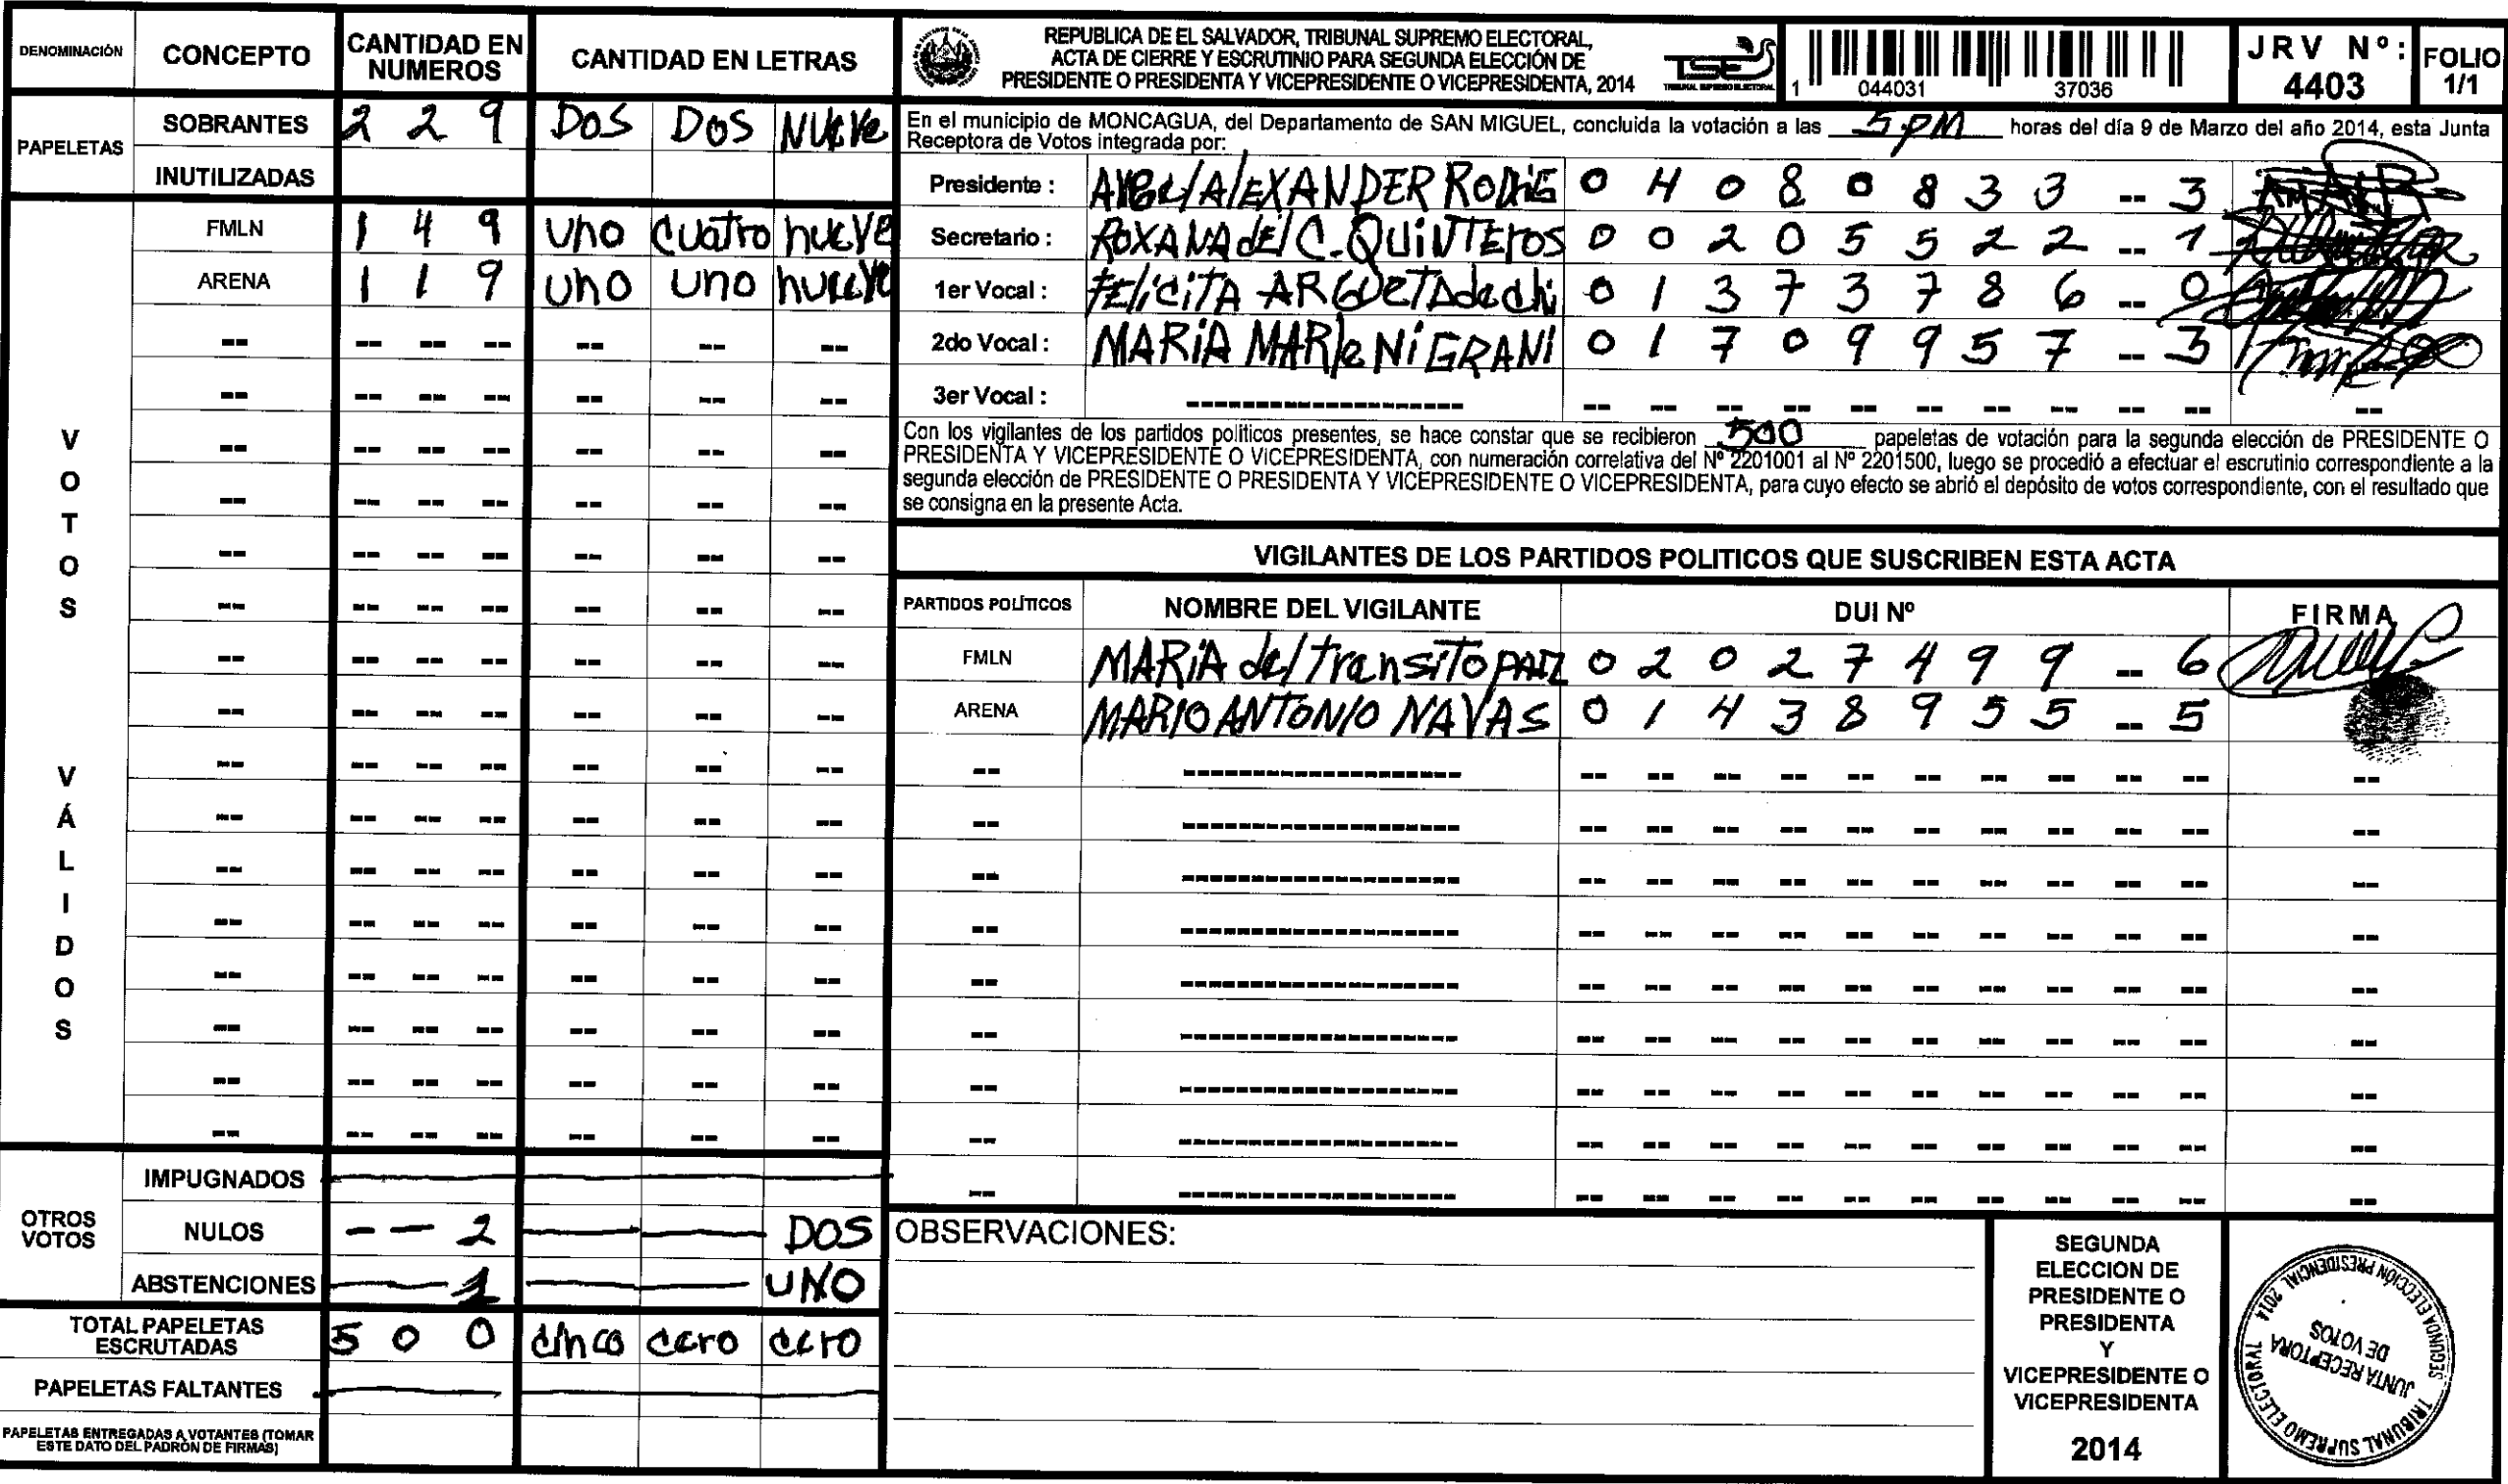 DENOMINACIÓN CONCEPTO CANTIDAD EN NUMEROS CANTIDAD EN LETRAS
PAPELETAS
SOBRANTES 2 2 9 DOS DOS NUEVE
INUTILIZADAS
VOTOS VÁLIDOS
FMLN 1 4 9 uno cuatro nueve
ARENA 1 1 9 uno uno nueve
OTROS VOTOS
IMPUGNADOS
NULOS -- -- 2 DOS
ABSTENCIONES 1 UNO
TOTAL PAPELETAS ESCRUTADAS 5 0 0 cinco cero cero
PAPELETAS FALTANTES
PAPELETAS ENTREGADAS A VOTANTES (TOMAR
ESTE DATO DEL PADRÓN DE FIRMAS)
REPUBLICA DE EL SALVADOR, TRIBUNAL SUPREMO ELECTORAL,
ACTA DE CIERRE Y ESCRUTINIO PARA SEGUNDA ELECCIÓN DE
PRESIDENTE O PRESIDENTA Y VICEPRESIDENTE O VICEPRESIDENTA, 2014
TSE
TRIBUNAL SUPREMO ELECTORAL
1 044031 37036
JRV Nº: 4403
FOLIO 1/1
En el municipio de MONCAGUA, del Departamento de SAN MIGUEL, concluida la votación a las 5 PM horas del día 9 de Marzo del año 2014, esta Junta
Receptora de Votos integrada por:
Presidente : ALEXANDER 0 4 0 8 0 8 3 3 -- 3
Secretario : ROXANA del C. QUINTEROS 0 0 2 0 5 5 2 2 -- 1
1er Vocal : FELICITA ARGUETA de chi 0 1 3 7 3 7 8 6 -- 0
2do Vocal : MARIA MARLENI GRANI 0 1 7 0 9 9 5 7 -- 3
3er Vocal :
Con los vigilantes de los partidos políticos presentes, se hace constar que se recibieron 500 papeletas de votación para la segunda elección de PRESIDENTE O
PRESIDENTA Y VICEPRESIDENTE O VICEPRESIDENTA, con numeración correlativa del Nº 2201001 al Nº 2201500, luego se procedió a efectuar el escrutinio correspondiente a la
segunda elección de PRESIDENTE O PRESIDENTA Y VICEPRESIDENTE O VICEPRESIDENTA, para cuyo efecto se abrió el depósito de votos correspondiente, con el resultado que
se consigna en la presente Acta.
VIGILANTES DE LOS PARTIDOS POLITICOS QUE SUSCRIBEN ESTA ACTA
PARTIDOS POLÍTICOS NOMBRE DEL VIGILANTE DUI Nº FIRMA
FMLN MARIA del transito PAIZ 0 2 0 2 7 4 9 9 -- 6
ARENA MARIO ANTONIO NAVAS 0 1 4 3 8 9 5 5 -- 5
OBSERVACIONES:
SEGUNDA
ELECCION DE
PRESIDENTE O
PRESIDENTA
Y
VICEPRESIDENTE O
VICEPRESIDENTA
2014
TRIBUNAL SUPREMO ELECTORAL
SEGUNDA ELECCION PRESIDENCIAL 2014
JUNTA RECEPTORA
DE VOTOS